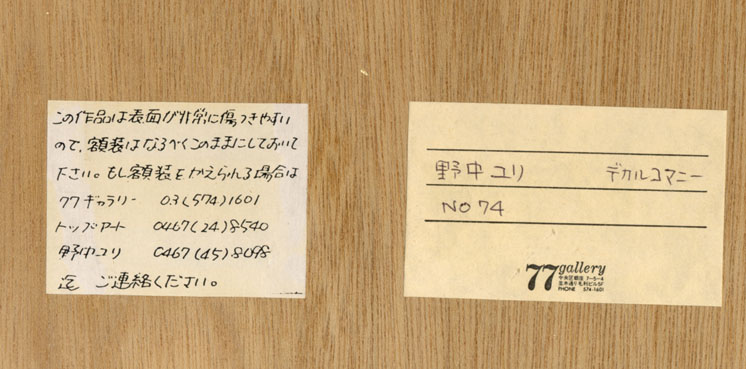 この作品は表面が非常に傷つきやすい
ので、額装はなるべくこのままにしておいて
下さい。もし額装をかえられる場合は
77ギャラリー 03(574)1601
トップアート 0467(24)8540
野中ユリ 0467(45)8098
迄 ご連絡ください。
野中ユリ デカルコマニー
NO 74
77 gallery
中央区銀座 7-5-4
並木通り毛利ビル5F
PHONE 574-1601